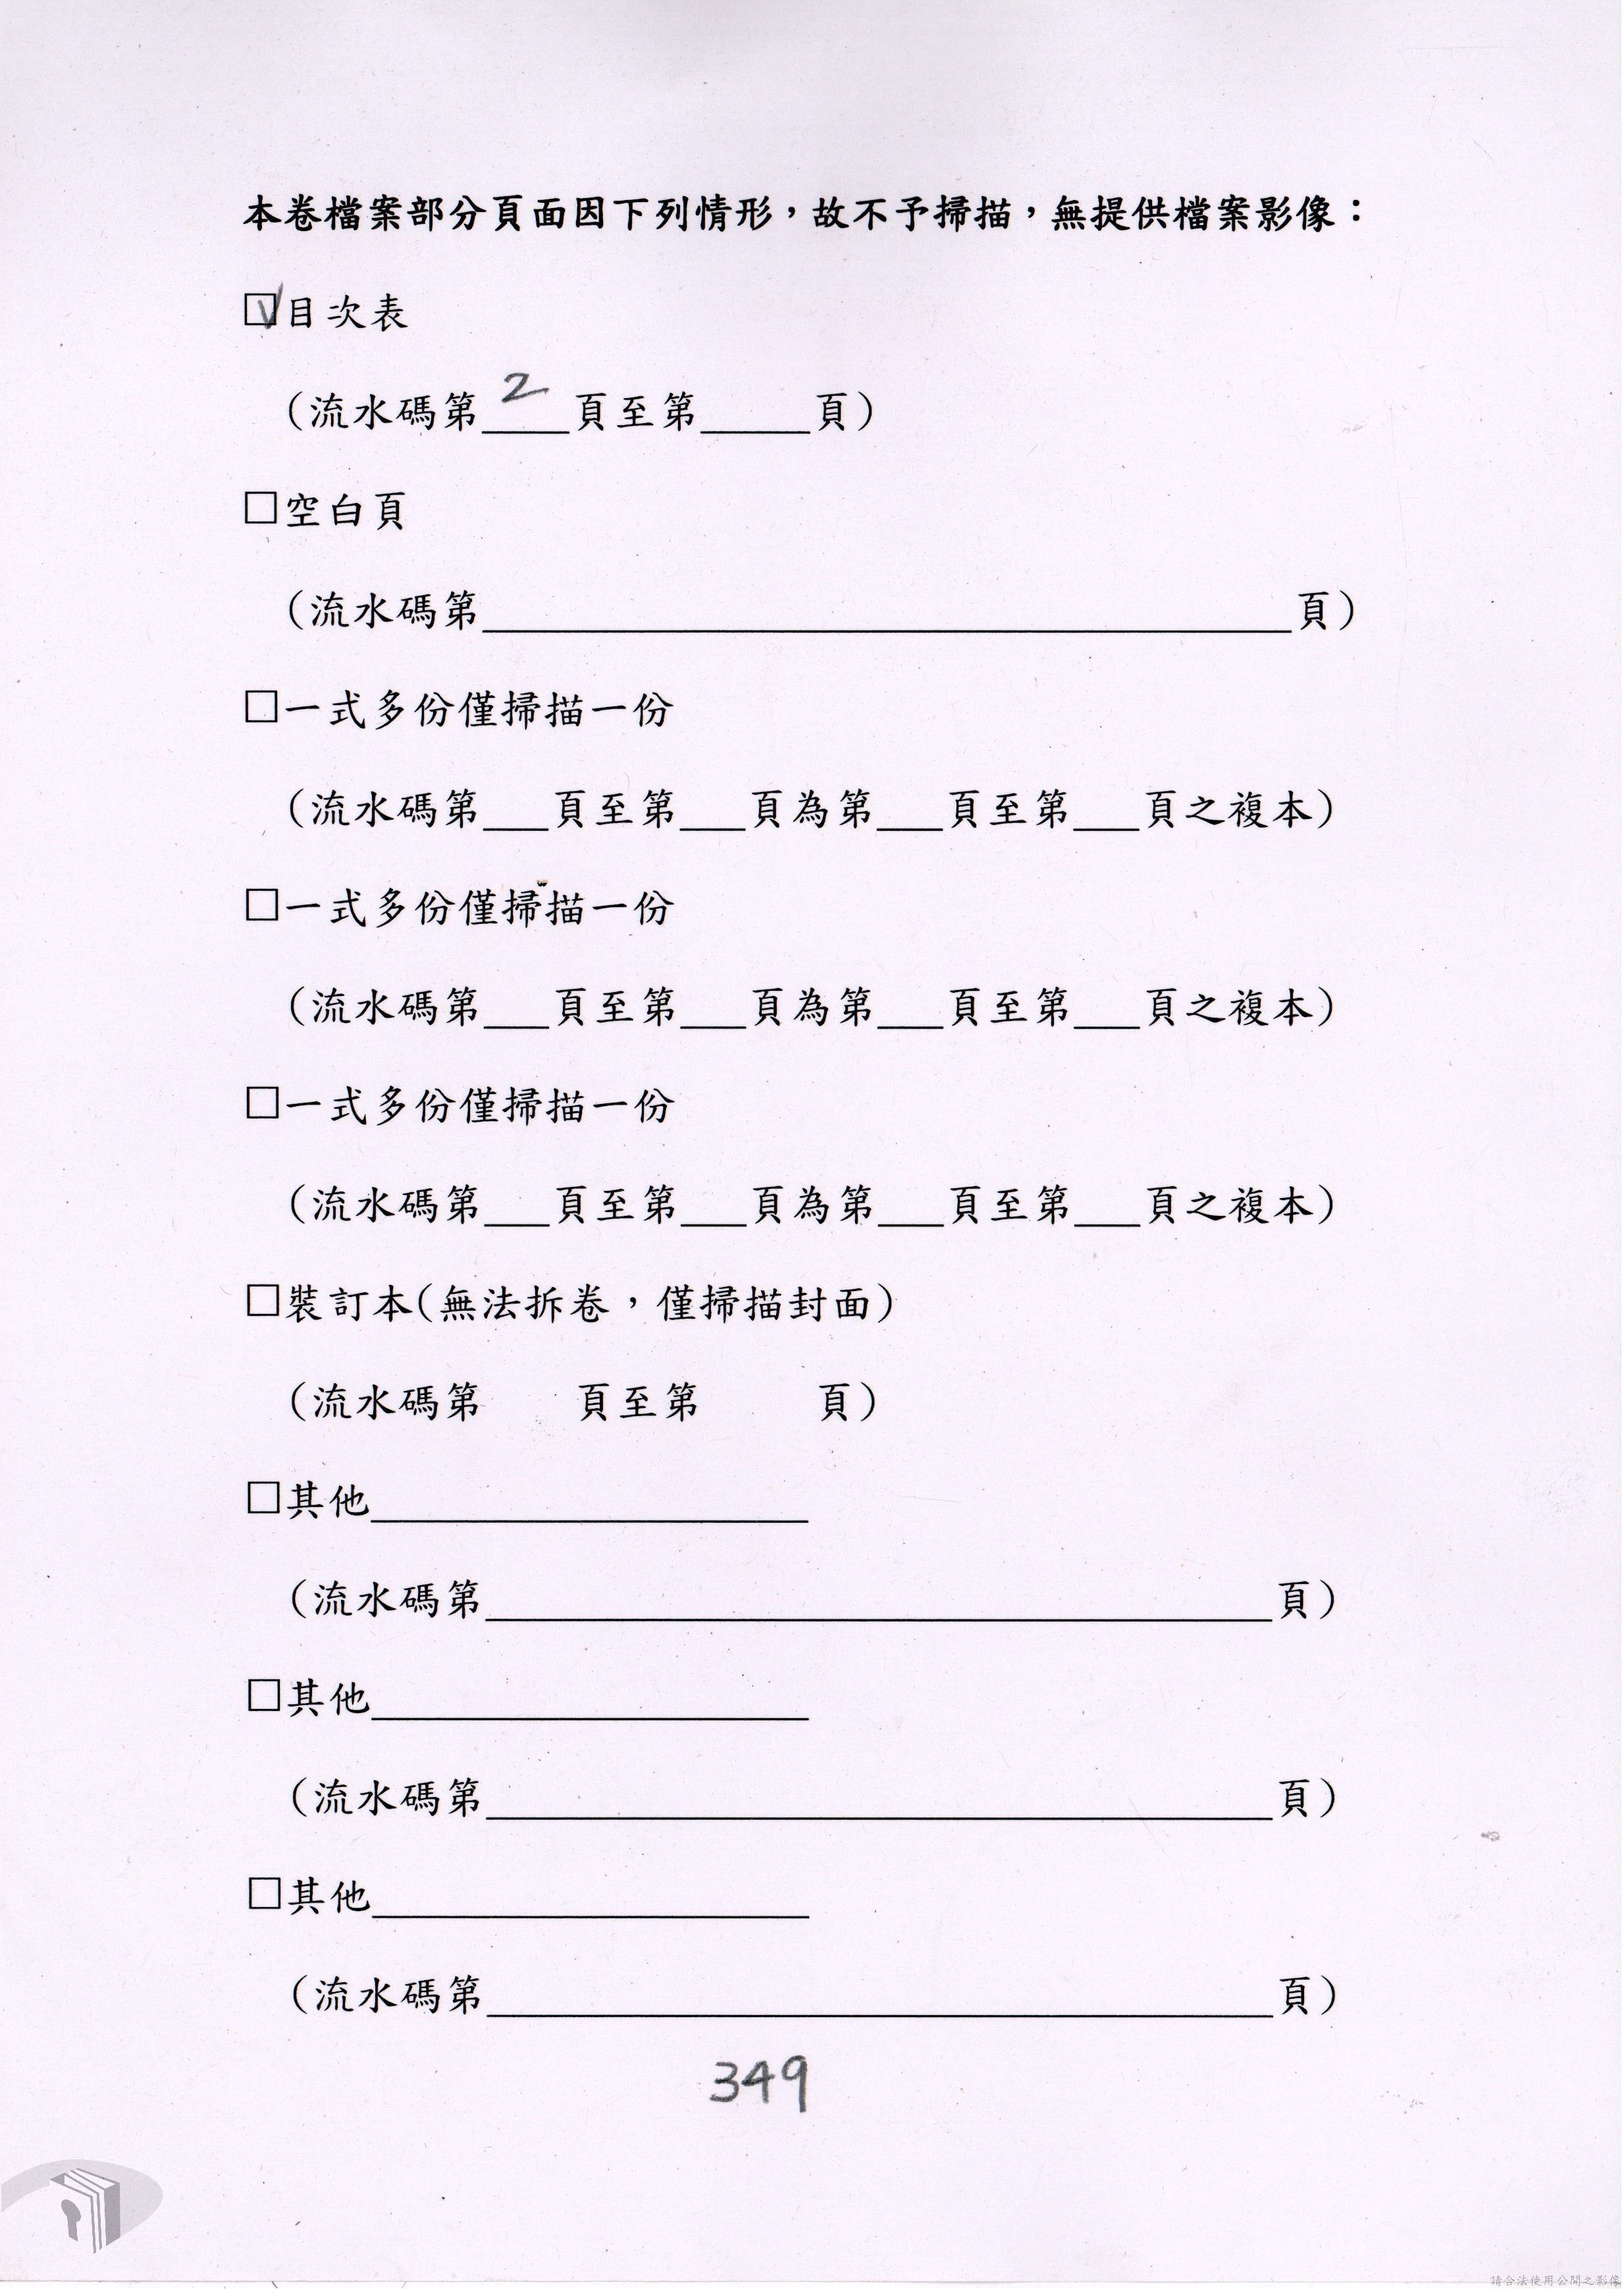 本卷檔案部分頁面因下列情形，故不予掃描，無提供檔案影像：
☑目次表
（流水碼第 2 頁至第____頁）
□空白頁
（流水碼第____________________頁）
□一式多份僅掃描一份
（流水碼第___頁至第___頁為第___頁至第___頁之複本）
□一式多份僅掃描一份
（流水碼第___頁至第___頁為第___頁至第___頁之複本）
□一式多份僅掃描一份
（流水碼第___頁至第___頁為第___頁至第___頁之複本）
□裝訂本(無法拆卷，僅掃描封面)
（流水碼第　　頁至第　　頁）
□其他__________
（流水碼第____________________頁）
□其他__________
（流水碼第____________________頁）
□其他__________
（流水碼第____________________頁）
349
請合法使用公開之影像